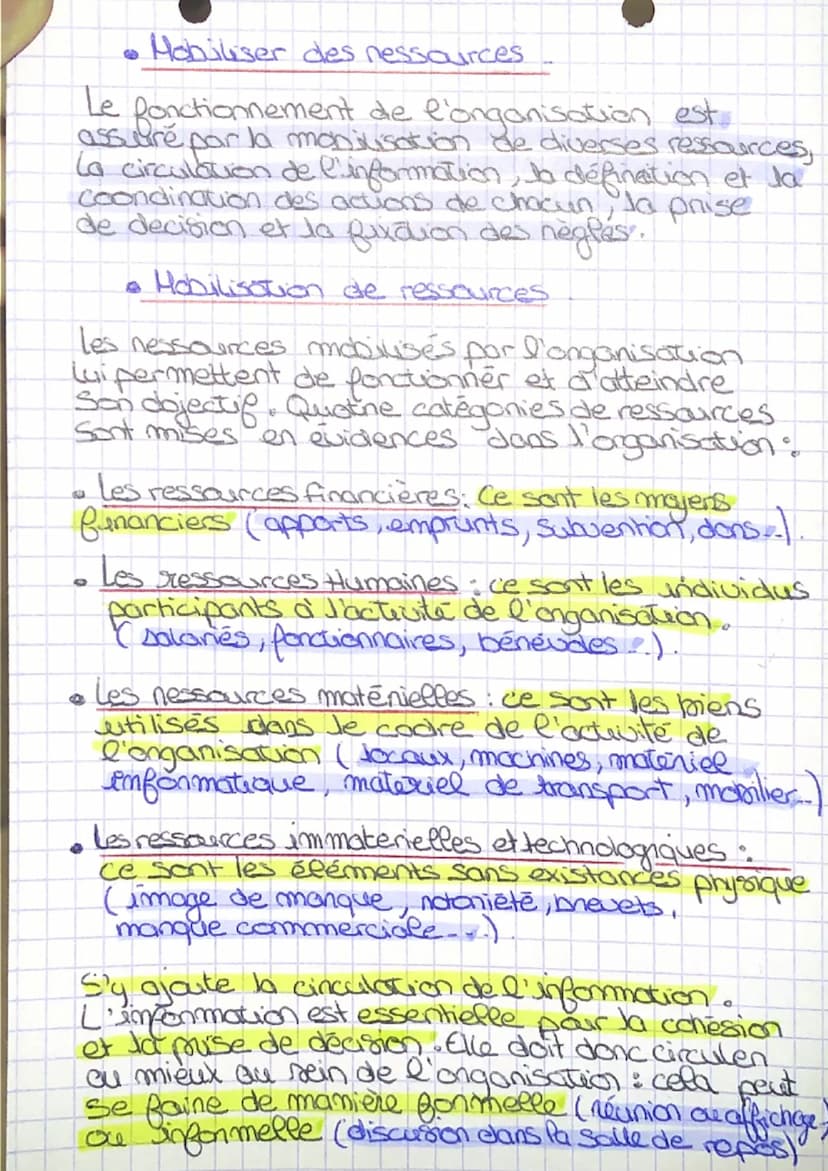 • Mobiliser des ressources.
Le fonctionnement de l'organisation est
assuré par la mobilisation de diverses ressources,
la circulation de l'information, la définition et la
coordination des actions de chacun, la prise
de decision et la fixation des règles.
• Mobilisation de ressources
Les ressources mobilisés par l'organisation
lui permettent de fonctionner et d'atteindre
son objectif. Quatre catégories de ressources
sont mises en évidences dans l'organisation :
• Les ressources financières : Ce sont les moyens
financiers (apports, emprunts, subvention, dons...).
• Les ressources Humaines : ce sont les individus
participants à l'activité de l'organisation.
(salariés, fonctionnaires, bénévoles...).
• Les ressources matérielles : ce sont les biens
utilisés dans le cadre de l'activité de
l'organisation (locaux, machines, matériel
informatique, materiel de transport, mobilier...)
• Les ressources immaterielles et technologiques :
ce sont les éléments sans existances physique
(image de marque, notoriété, brevets,
marque commmerciale...)
S'y ajoute la circulation de l'information.
L'information est essentielle pour la cohésion
et la prise de décision. Elle doit donc circuler
au mieux au sein de l'organisation : cela peut
se faire de manière formelle (réunion ou affichage)
ou informelle (discussion dans la salle de repos)